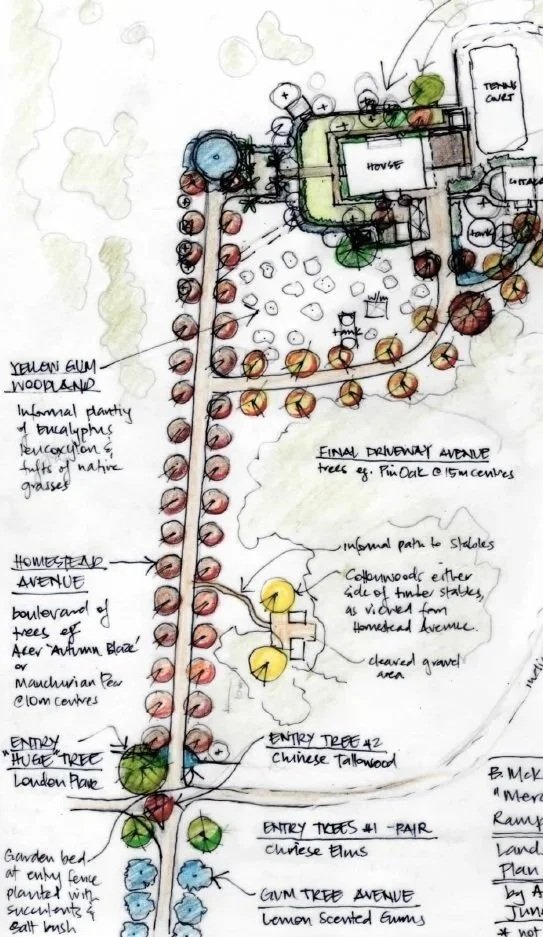 TENNIS
COURT
HOUSE
COTTAGE
tank
W/m
tank
YELLOW GUM
WOODLAND
Informal planting
of Eucalyptus
leucoxylon &
tufts of native
grasses
FINAL DRIVEWAY AVENUE
trees eg. Pin Oak @ 15m centres
informal path to stables
Cottonwoods either
side of timber stables,
as viewed from
Homestead Avenue.
cleared gravel
area
HOMESTEAD
AVENUE
boulevard of
trees eg
Acer 'Autumn Blaze'
or
Manchurian Pear
@ 10m centres
ENTRY
"HUGE" TREE
London Plane
ENTRY TREE #2
Chinese Tallowood
ENTRY TREES #1 - PAIR
Chinese Elms
Garden bed
at entry fence
planted with
succulents &
salt bush
GUM TREE AVENUE
Lemon Scented Gums
B. McK
"Merc
Ramp
Land
Plan
by A
June
* not